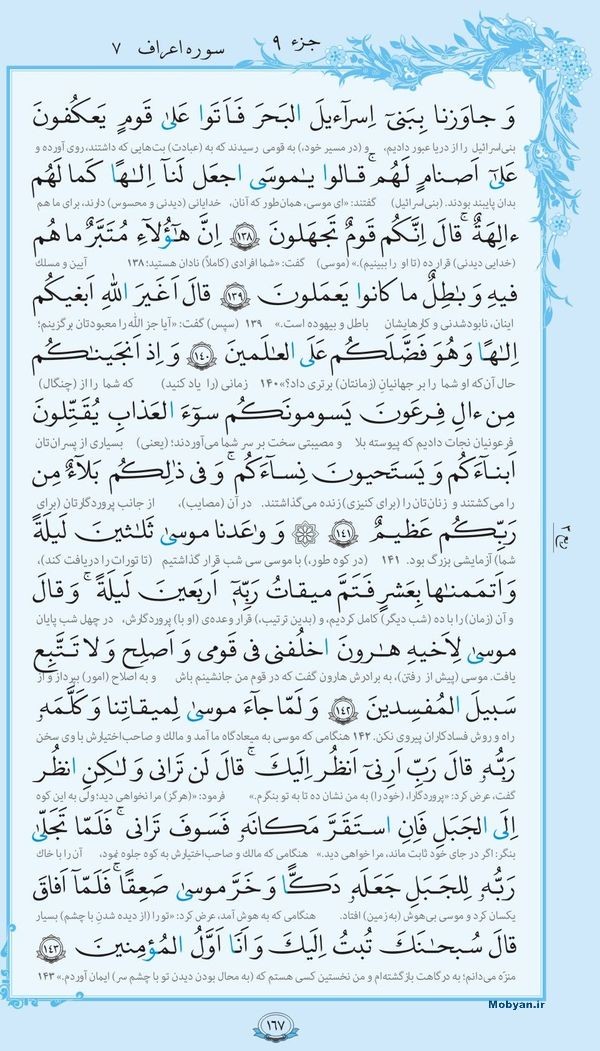 جزء ۹
سوره اعراف ۷
وَ جاوَزنا بِبَنیٓ اِسرآءیلَ البَحرَ فَاَتَوا عَلیٰ قَومٍ یَعکُفونَ
بنی‌اسرائیل را از دریا عبور دادیم، و (در مسیر خود،) به قومی رسیدند که به (عبادت) بت‌هایی که داشتند، روی آورده و
عَلیٰٓ اَصنامٍ لَهُم ۚ قالوا یٰموسَی اجعَل لَنآ اِلٰهًا کَما لَهُم
بدان پایبند بودند. (بنی‌اسرائیل) گفتند: «ای موسی، همان‌طور که آنان، خدایانی (دیدنی و محسوس) دارند، برای ما هم
ءالِهَةٌ ۚ قالَ اِنَّکُم قَومٌ تَجهَلونَ ﴿۱۳۸﴾ اِنَّ هٰٓؤُلآءِ مُتَبَّرٌ ما هُم
(خدایی دیدنی) قرار ده (تا او را ببینیم).» (موسی) گفت: «شما افرادی (کاملاً) نادان هستید؛ ۱۳۸ آیین و مسلک
فیهِ وَ باطِلٌ ما کانوا یَعمَلونَ ﴿۱۳۹﴾ قالَ اَغَیرَ اللهِ اَبغیکُم
اینان، نابودشدنی و کارهایشان باطل و بیهوده است.» ۱۳۹ (سپس) گفت: «آیا جز الله را معبودتان برگزینم؛
اِلٰهًا وَ هُوَ فَضَّلَکُم عَلَی العالَمینَ ﴿۱۴۰﴾ وَ اِذ اَنجَیناکُم
حال آن‌که او شما را بر جهانیانِ (زمانتان) برتری داد؟» ۱۴۰ زمانی (را یاد کنید) که شما را از (چنگال)
مِن ءالِ فِرعَونَ یَسومونَکُم سوٓءَ العَذابِ یُقَتِّلونَ
فرعونیان نجات دادیم که پیوسته بلا و مصیبتی سخت بر سر شما می‌آوردند؛ (یعنی) بسیاری از پسران‌تان
اَبنآءَکُم وَ یَستَحیونَ نِسآءَکُم ۚ وَ فی ذٰلِکُم بَلآءٌ مِن
را می‌کشتند و زنان‌تان را (برای کنیزی) زنده می‌گذاشتند. در آن (مصایب)، از جانب پروردگارتان (برای
رَبِّکُم عَظیمٌ ﴿۱۴۱﴾ وَ واعَدنا موسیٰ ثَلٰثینَ لَیلَةً
شما) آزمایشی بزرگ بود. ۱۴۱ (در کوه طور،) با موسی سی شب قرار گذاشتیم (تا تورات را دریافت کند)،
وَ اَتمَمناها بِعَشرٍ فَتَمَّ میقاتُ رَبِّهٖٓ اَربَعینَ لَیلَةً ۚ وَ قالَ
و آن (زمان) را با ده (شب دیگر) کامل کردیم، و (بدین ترتیب،) قرار وعده‌ی (او با) پروردگارش، در چهل شب پایان
موسیٰ لِاَخیهِ هٰرونَ اخلُفنی فی قَومی وَ اَصلِح وَ لا تَتَّبِع
یافت. موسی (پیش از رفتن)، به برادرش هارون گفت که در قوم من جانشینم باش و به اصلاح (امور) بپرداز و از
سَبیلَ المُفسِدینَ ﴿۱۴۲﴾ وَ لَمّا جآءَ موسیٰ لِمیقاتِنا وَ کَلَّمَهٗ
راه و روش فسادکاران پیروی نکن. ۱۴۲ هنگامی که موسی به میعادگاه ما آمد و مالک و صاحب‌اختیارش با وی سخن
رَبُّهٗ قالَ رَبِّ اَرِنیٓ اَنظُر اِلَیکَ ۚ قالَ لَن تَرانی وَ لٰکِنِ انظُر
گفت، عرض کرد: «پروردگارا، (خود را) به من نشان ده تا به تو بنگرم.» فرمود: «(هرگز) مرا نخواهی دید؛ ولی به این کوه
اِلَی الجَبَلِ فَاِنِ استَقَرَّ مَکانَهٗ فَسَوفَ تَرانی ۚ فَلَمّا تَجَلّیٰ
بنگر: اگر در جای خود ثابت ماند، مرا خواهی دید.» هنگامی که مالک و صاحب‌اختیارش به کوه جلوه نمود، آن را با خاک
رَبُّهٗ لِلجَبَلِ جَعَلَهٗ دَکًّا وَ خَرَّ موسیٰ صَعِقًا ۚ فَلَمّآ اَفاقَ
یکسان کرد و موسی بی‌هوش (به زمین) افتاد. هنگامی که به هوش آمد، عرض کرد: «تو را (از دیده شدن با چشم) بسیار
قالَ سُبحانَکَ تُبتُ اِلَیکَ وَ اَنَا اَوَّلُ المُؤمِنینَ ﴿۱۴۳﴾
منزّه می‌دانم؛ به درگاهت بازگشته‌ام و من نخستین کسی هستم که (به محال بودن دیدن تو با چشم سر) ایمان آوردم.» ۱۴۳
۱۶۷
Mobyan.ir